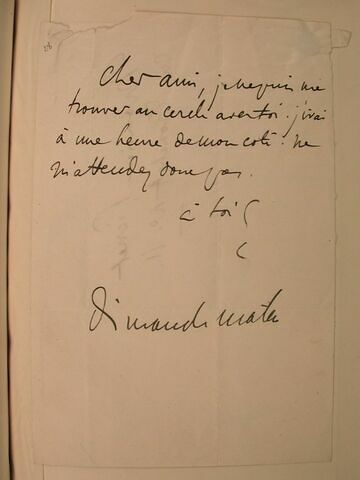 Cher ami, je ne puis me
trouver au cercle avec toi. j'irai
à une heure de mon côté. ne
m'attendez donc pas.
à toi
Dimanche matin